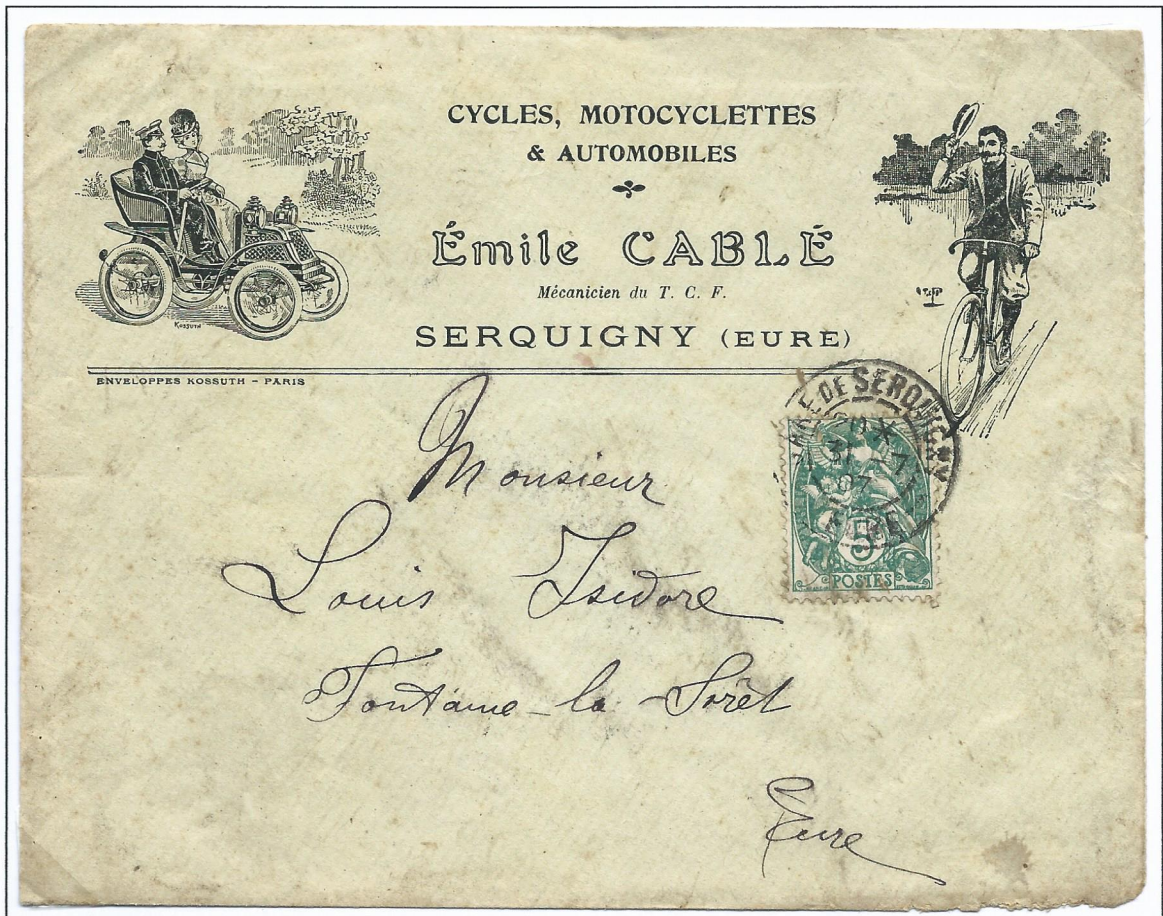 CYCLES, MOTOCYCLETTES
& AUTOMOBILES
Émile CABLÉ
Mécanicien du T. C. F.
SERQUIGNY (EURE)
KOSSUTH
ENVELOPPES KOSSUTH - PARIS
DE SERQUIGNY
31 -7
07
EURE
5
POSTES
Monsieur
Louis Isidore
Fontaine-la-Sorêt
Eure